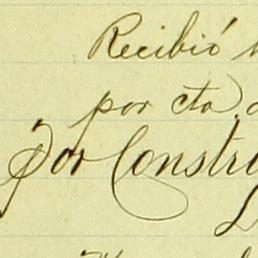 Recibió
por cta.
Por Constr